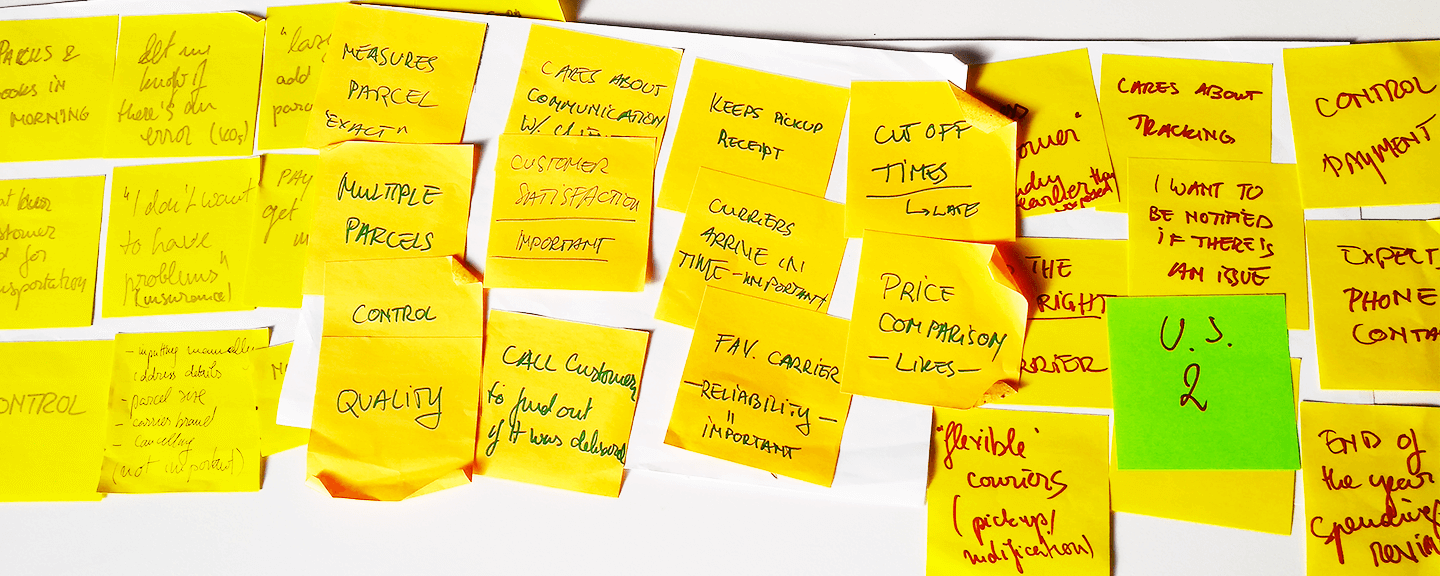 PACKS &
BOOKS IN
MORNING
let me
know if
there's an
error (KOS)
add
MEASURES
PARCEL
"EXACT"
CARES ABOUT
COMMUNICATION
KEEPS PICKUP
RECEIPT
CUT OFF
TIMES
↳ LATE
omer"
earlier than
CARES ABOUT
TRACKING
CONTROL
PAYMENT
for
"I don't want
to have
problems"
(insurance)
PAY
get
MULTIPLE
PARCELS
CUSTOMER
SATISFACTION
IMPORTANT
CURRIERS
ARRIVE IN
TIME - IMPORTANT
PRICE
COMPARISON
— LIKES —
THE
RIGHT
I WANT TO
BE NOTIFIED
IF THERE IS
AN ISSUE
EXPECT
PHONE
CONTA
CONTROL
- inputting manually
address details
- parcel size
- carrier brand
- cancelling
(not important)
CONTROL
QUALITY
CALL Customer
to find out
if it was delivered
FAV. CARRIER
— RELIABILITY —
=
IMPORTANT
"flexible"
couriers
(pickup/
modification)
U.S.
2
END OF
the year
spending